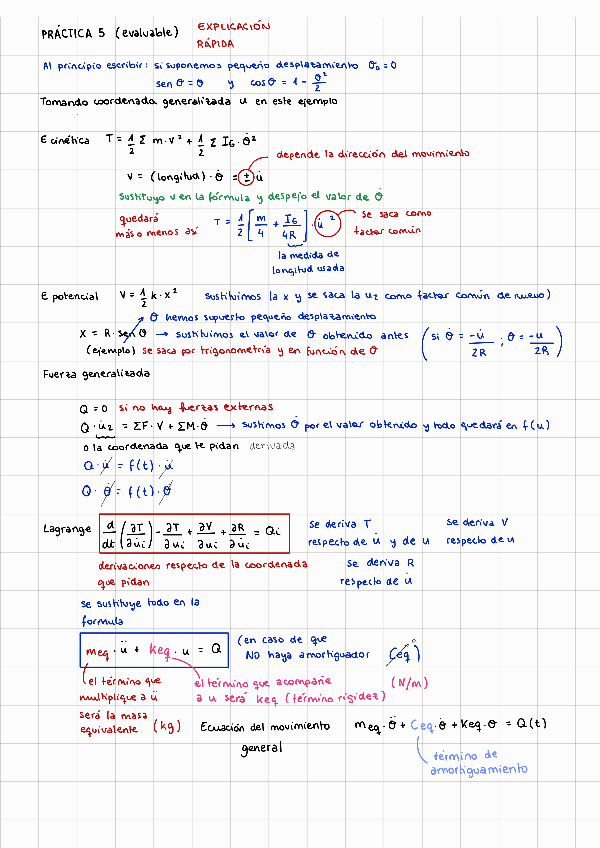 PRÁCTICA 5 (evaluable) EXPLICACIÓN
RÁPIDA
Al principio escribir: si suponemos pequeño desplazamiento θ₀ = 0
sen θ = θ y cos θ = 1 - θ²/2
Tomando coordenada generalizada u en este ejemplo
E cinética T = 1/2 Σ m·v² + 1/2 Σ I_G·θ̇²
depende la dirección del movimiento
v = (longitud)·θ̇ = ± u̇
sustituyo v en la fórmula y despejo el valor de θ̇
quedará más o menos así T = 1/2 [m/4 + I_G/4R]·u̇² se saca como factor común
la medida de
longitud usada
E potencial V = 1/2 k·x² sustituimos la x y se saca la u₂ como factor común de nuevo)
θ hemos supuesto pequeño desplazamiento
x = R·sen θ → sustituimos el valor de θ obtenido antes (si θ̇ = -u̇/2R ; θ = -u/2R)
(ejemplo) se saca por trigonometría y en función de θ
Fuerza generalizada
Q = 0 si no hay fuerzas externas
Q·u̇₂ = ΣF·V + ΣM·θ̇ → sustimos θ̇ por el valor obtenido y todo quedará en f(u)
o la coordenada que te pidan derivada
Q·u̇ = f(t)·u̇
Q·θ̇ = f(t)·θ̇
Lagrange d/dt (∂T/∂u̇i) - ∂T/∂ui + ∂V/∂ui + ∂R/∂u̇i = Qi
se deriva T respecto de u̇ y de u
se deriva V respecto de u
derivaciones respecto de la coordenada
que pidan
se deriva R
respecto de u̇
se sustituye todo en la
formula
meq·ü + keq·u = Q
(en caso de que
NO haya amortiguador Ceq)
el término que
multiplique a ü
será la masa
equivalente (kg)
el término que acompañe
a u será keq (término rigidez) (N/m)
Ecuación del movimiento
general
meq·θ̈ + Ceq·θ̇ + Keq·θ = Q(t)
término de
amortiguamiento